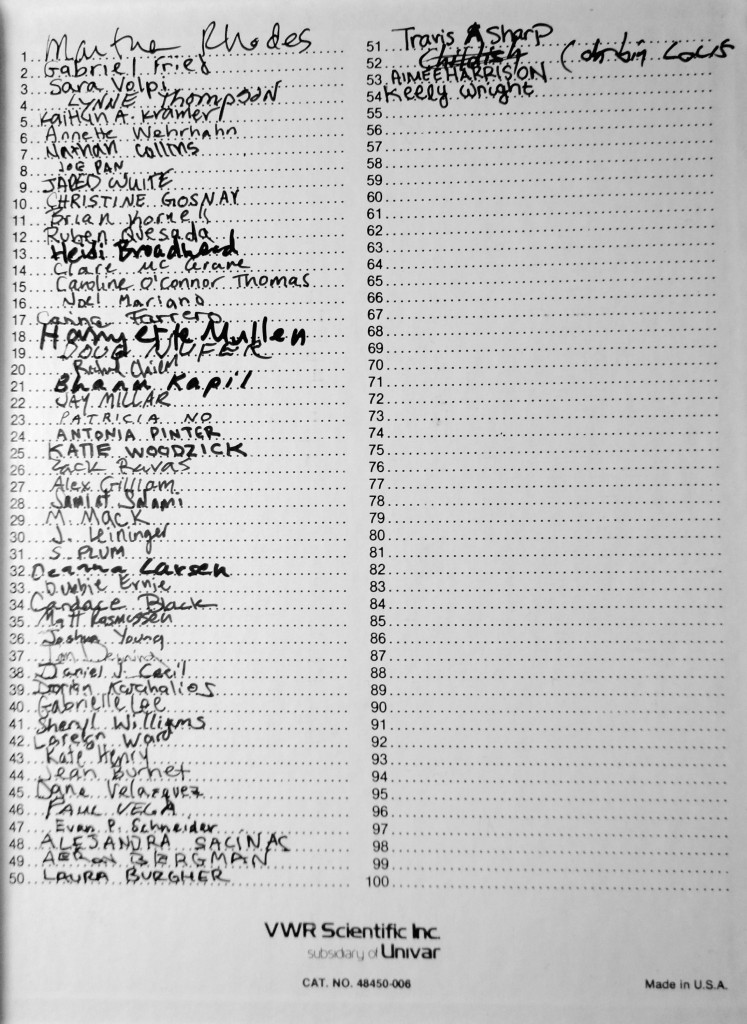 1 Martha Rhodes
2 Gabriel Fried
3 Sara Volpi
4 LYNNE Thompson
5 Kaitlin A. Kramer
6 Annette Wehrhahn
7 Nathan Collins
8 JOE PAN
9 JARED WHITE
10 CHRISTINE GOSNAY
11 Brian Kornell
12 Ruben Quesada
13 Heidi Broadhead
14 Clare Mc Crane
15 Caroline O'Connor Thomas
16 Noel Mariano
17 Carina Farrero
18 Harryette Mullen
19 DOUG NUFER
20
21 Bhanu Kapil
22 JAY MILLAR
23 PATRICIA NO
24 ANTONIA PINTER
25 KATIE WOODZICK
26 Zack Ravas
27 Alex Gilliam
28 Salami
29 M. Mack
30 J. Leininger
31 S. PLUM
32 Deanna Larsen
33 Ernie
34 Candace Black
35 Matt Rasmussen
36 Joshua Young
37
38 Daniel J. Cecil
39 Dorian Karahalios
40 Gabrielle Lee
41 Sheryl Williams
42 Ward
43 Kate Henry
44 Jean Burnet
45 Dane Velazquez
46 PAUL VEGA
47 Evan P. Schneider
48 ALEJANDRA SALINAS
49 AERON BERGMAN
50 LAURA BURGHER
51 Travis A Sharp
52 Corbin Louis
53 AIMEE HARRISON
54 Kelly Wright
55
56
57
58
59
60
61
62
63
64
65
66
67
68
69
70
71
72
73
74
75
76
77
78
79
80
81
82
83
84
85
86
87
88
89
90
91
92
93
94
95
96
97
98
99
100
VWR Scientific Inc.
subsidiary of Univar
CAT. NO. 48450-006
Made in U.S.A.